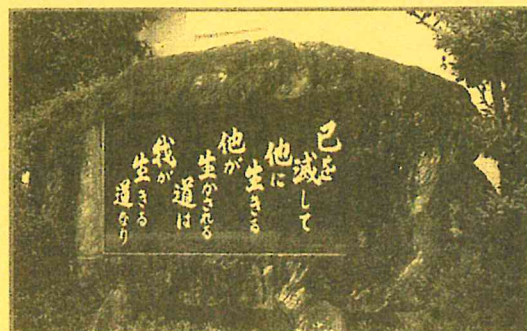 己を
滅して
他に
生きる
他が
生かされる
道は
我が
生きる
道なり